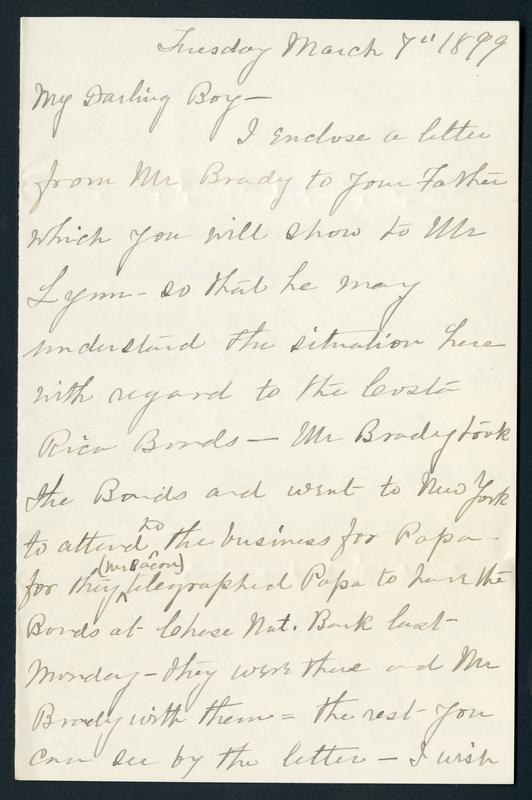 Tuesday March 7" 1899
My Darling Boy—
I enclose a letter
from Mr Brady to your Father
which you will show to Mr
Lynn - so that he may
understand the situation here
with regard to the Costa
Rica Bonds — Mr Brady took
the Bonds and went to New York
to attend to the business for Papa -
for they (Mr Bacon) telegraphed Papa to have the
Bonds at Chase Nat. Bank last
Monday - they were there and Mr
Brady with them = the rest you
can see by the letter — I wish